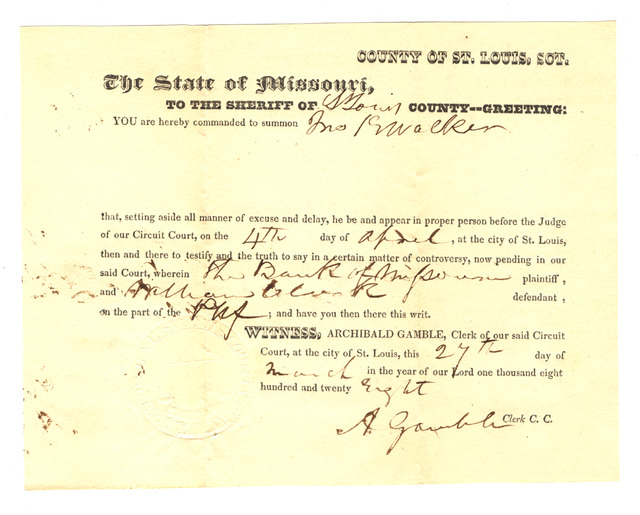 COUNTY OF ST. LOUIS, SCT.
The State of Missouri,
TO THE SHERIFF OF St Louis COUNTY--GREETING:
YOU are hereby commanded to summon Jno K Walker
that, setting aside all manner of excuse and delay, he be and appear in proper person before the Judge
of our Circuit Court, on the 4th day of April , at the city of St. Louis,
then and there to testify and the truth to say in a certain matter of controversy, now pending in our
said Court, wherein the Bank of Missouri plaintiff ,
and Clark defendant ,
on the part of the Plff ; and have you then there this writ.
WITNESS, ARCHIBALD GAMBLE, Clerk of our said Circuit
Court, at the city of St. Louis, this 27th day of
March in the year of our Lord one thousand eight
hundred and twenty Eight
A. Gamble Clerk C. C.